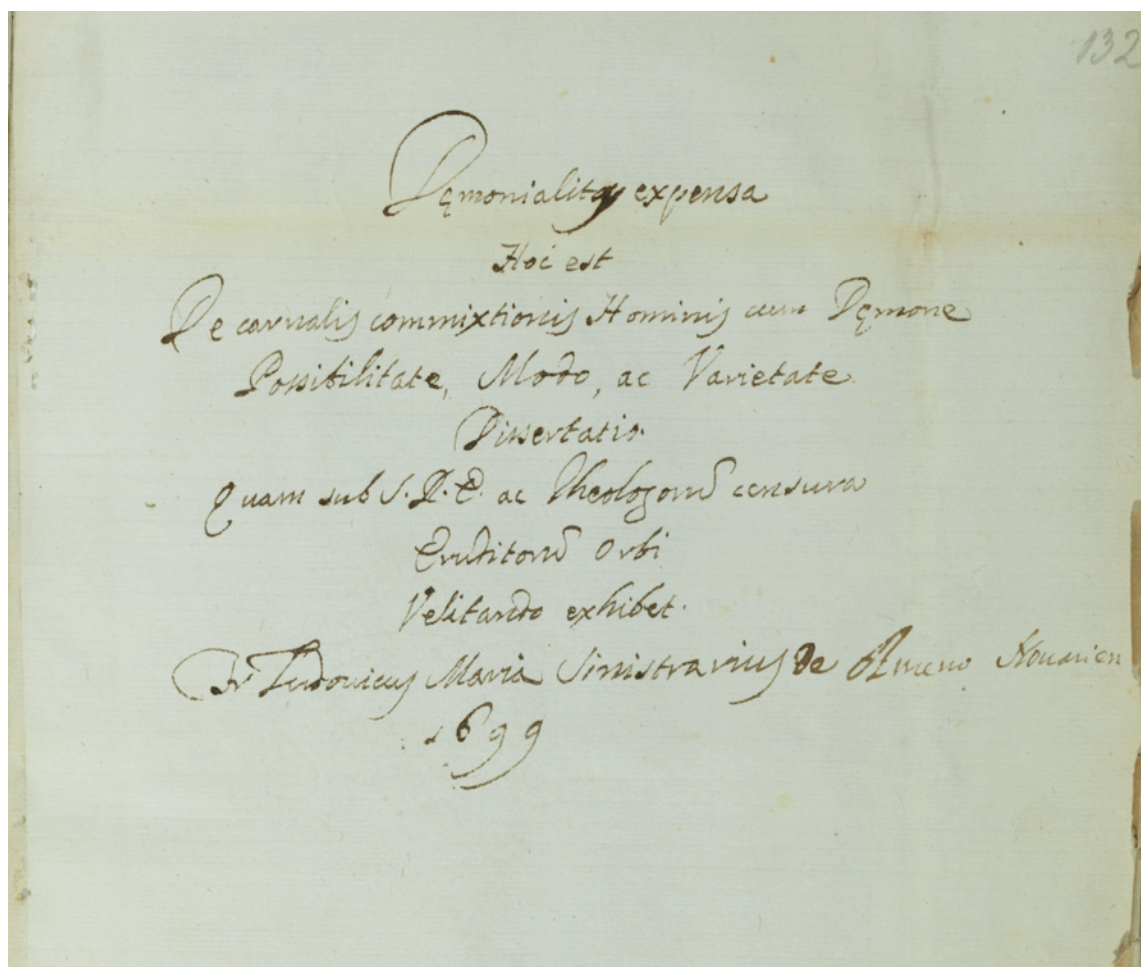 132
Dęmonialitas expensa
Hoc est
De carnalis commixtionis Hominis cum Dęmone
Possibilitate, Modo, ac Varietate
Dissertatio.
Quam sub S. R. E. ac Theologorũ censura
Eruditorũ Orbi
Velitando exhibet.
Fr Ludovicus Maria Sinistrarius de Ameno Nouarien
1699